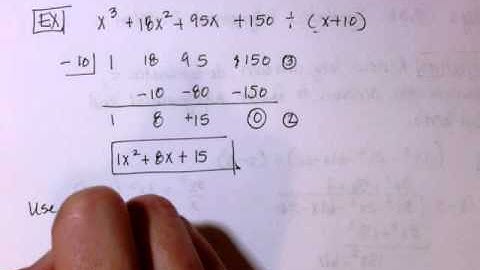 EX x³ + 18x² + 95x + 150 ÷ (x+10)
-10 1 18 95 150 ③
-10 -80 -150
1 8 +15 0 ②
1x² + 8x + 15
Use